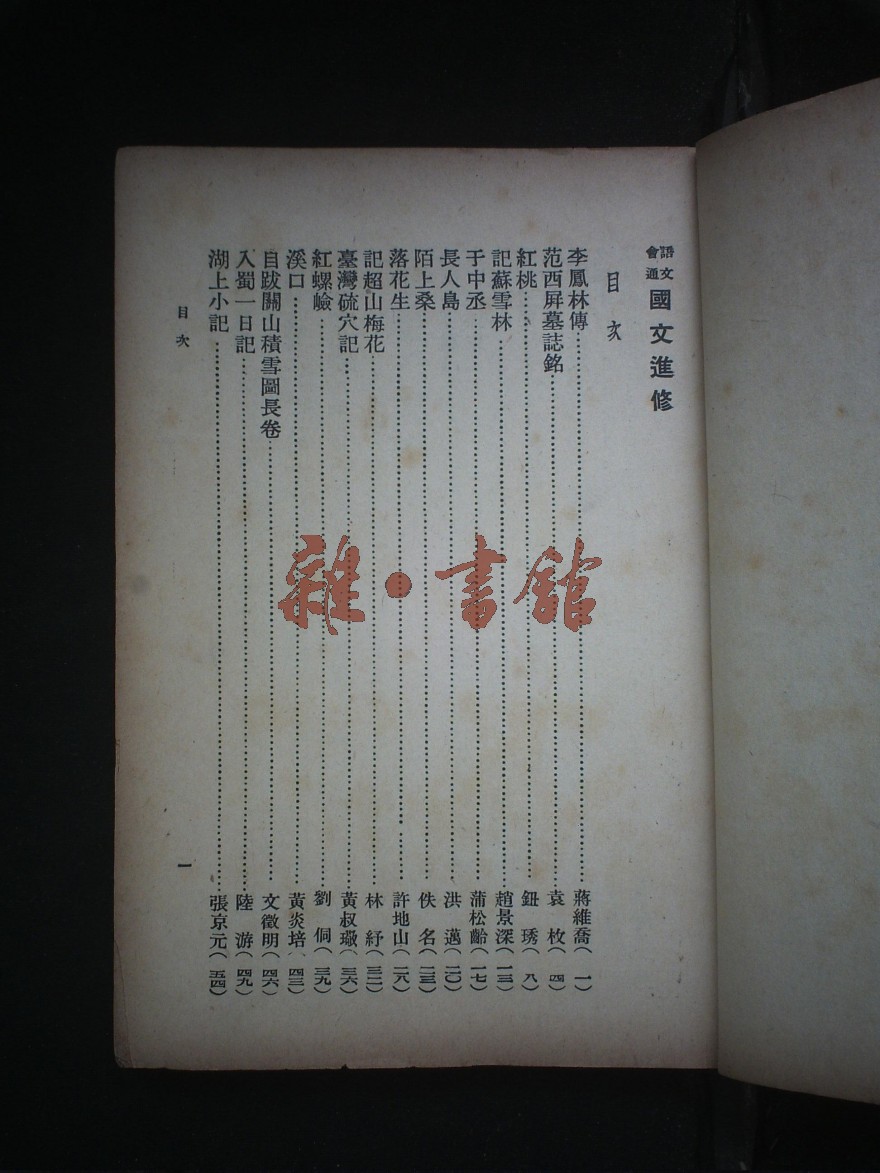 語文會通 國文進修
目次
李鳳林傳……蔣維喬(一)
范西屏墓誌銘……袁枚(四)
紅桃……鈕琇(八)
記蘇雪林……趙景深(一三)
于中丞……蒲松齡(一七)
長人島……洪邁(二〇)
陌上桑……佚名(二三)
落花生……許地山(二八)
記超山梅花……林紓(三二)
臺灣硫穴記……黃叔璥(三六)
紅螺嶮……劉侗(三九)
溪口……黃炎培(四三)
自跋關山積雪圖長卷……文徵明(四六)
入蜀一日記……陸游(四九)
湖上小記……張京元(五四)
目次
一
雜·書館